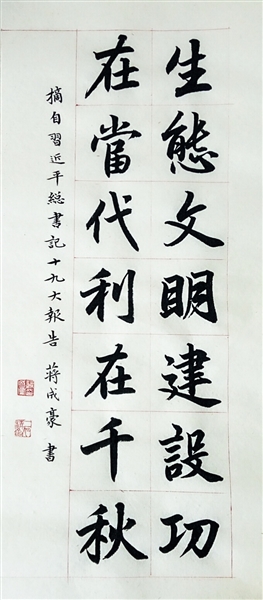 生態文明建設功
在當代利在千秋
摘自習近平總書記十九大報告 蔣成豪 書